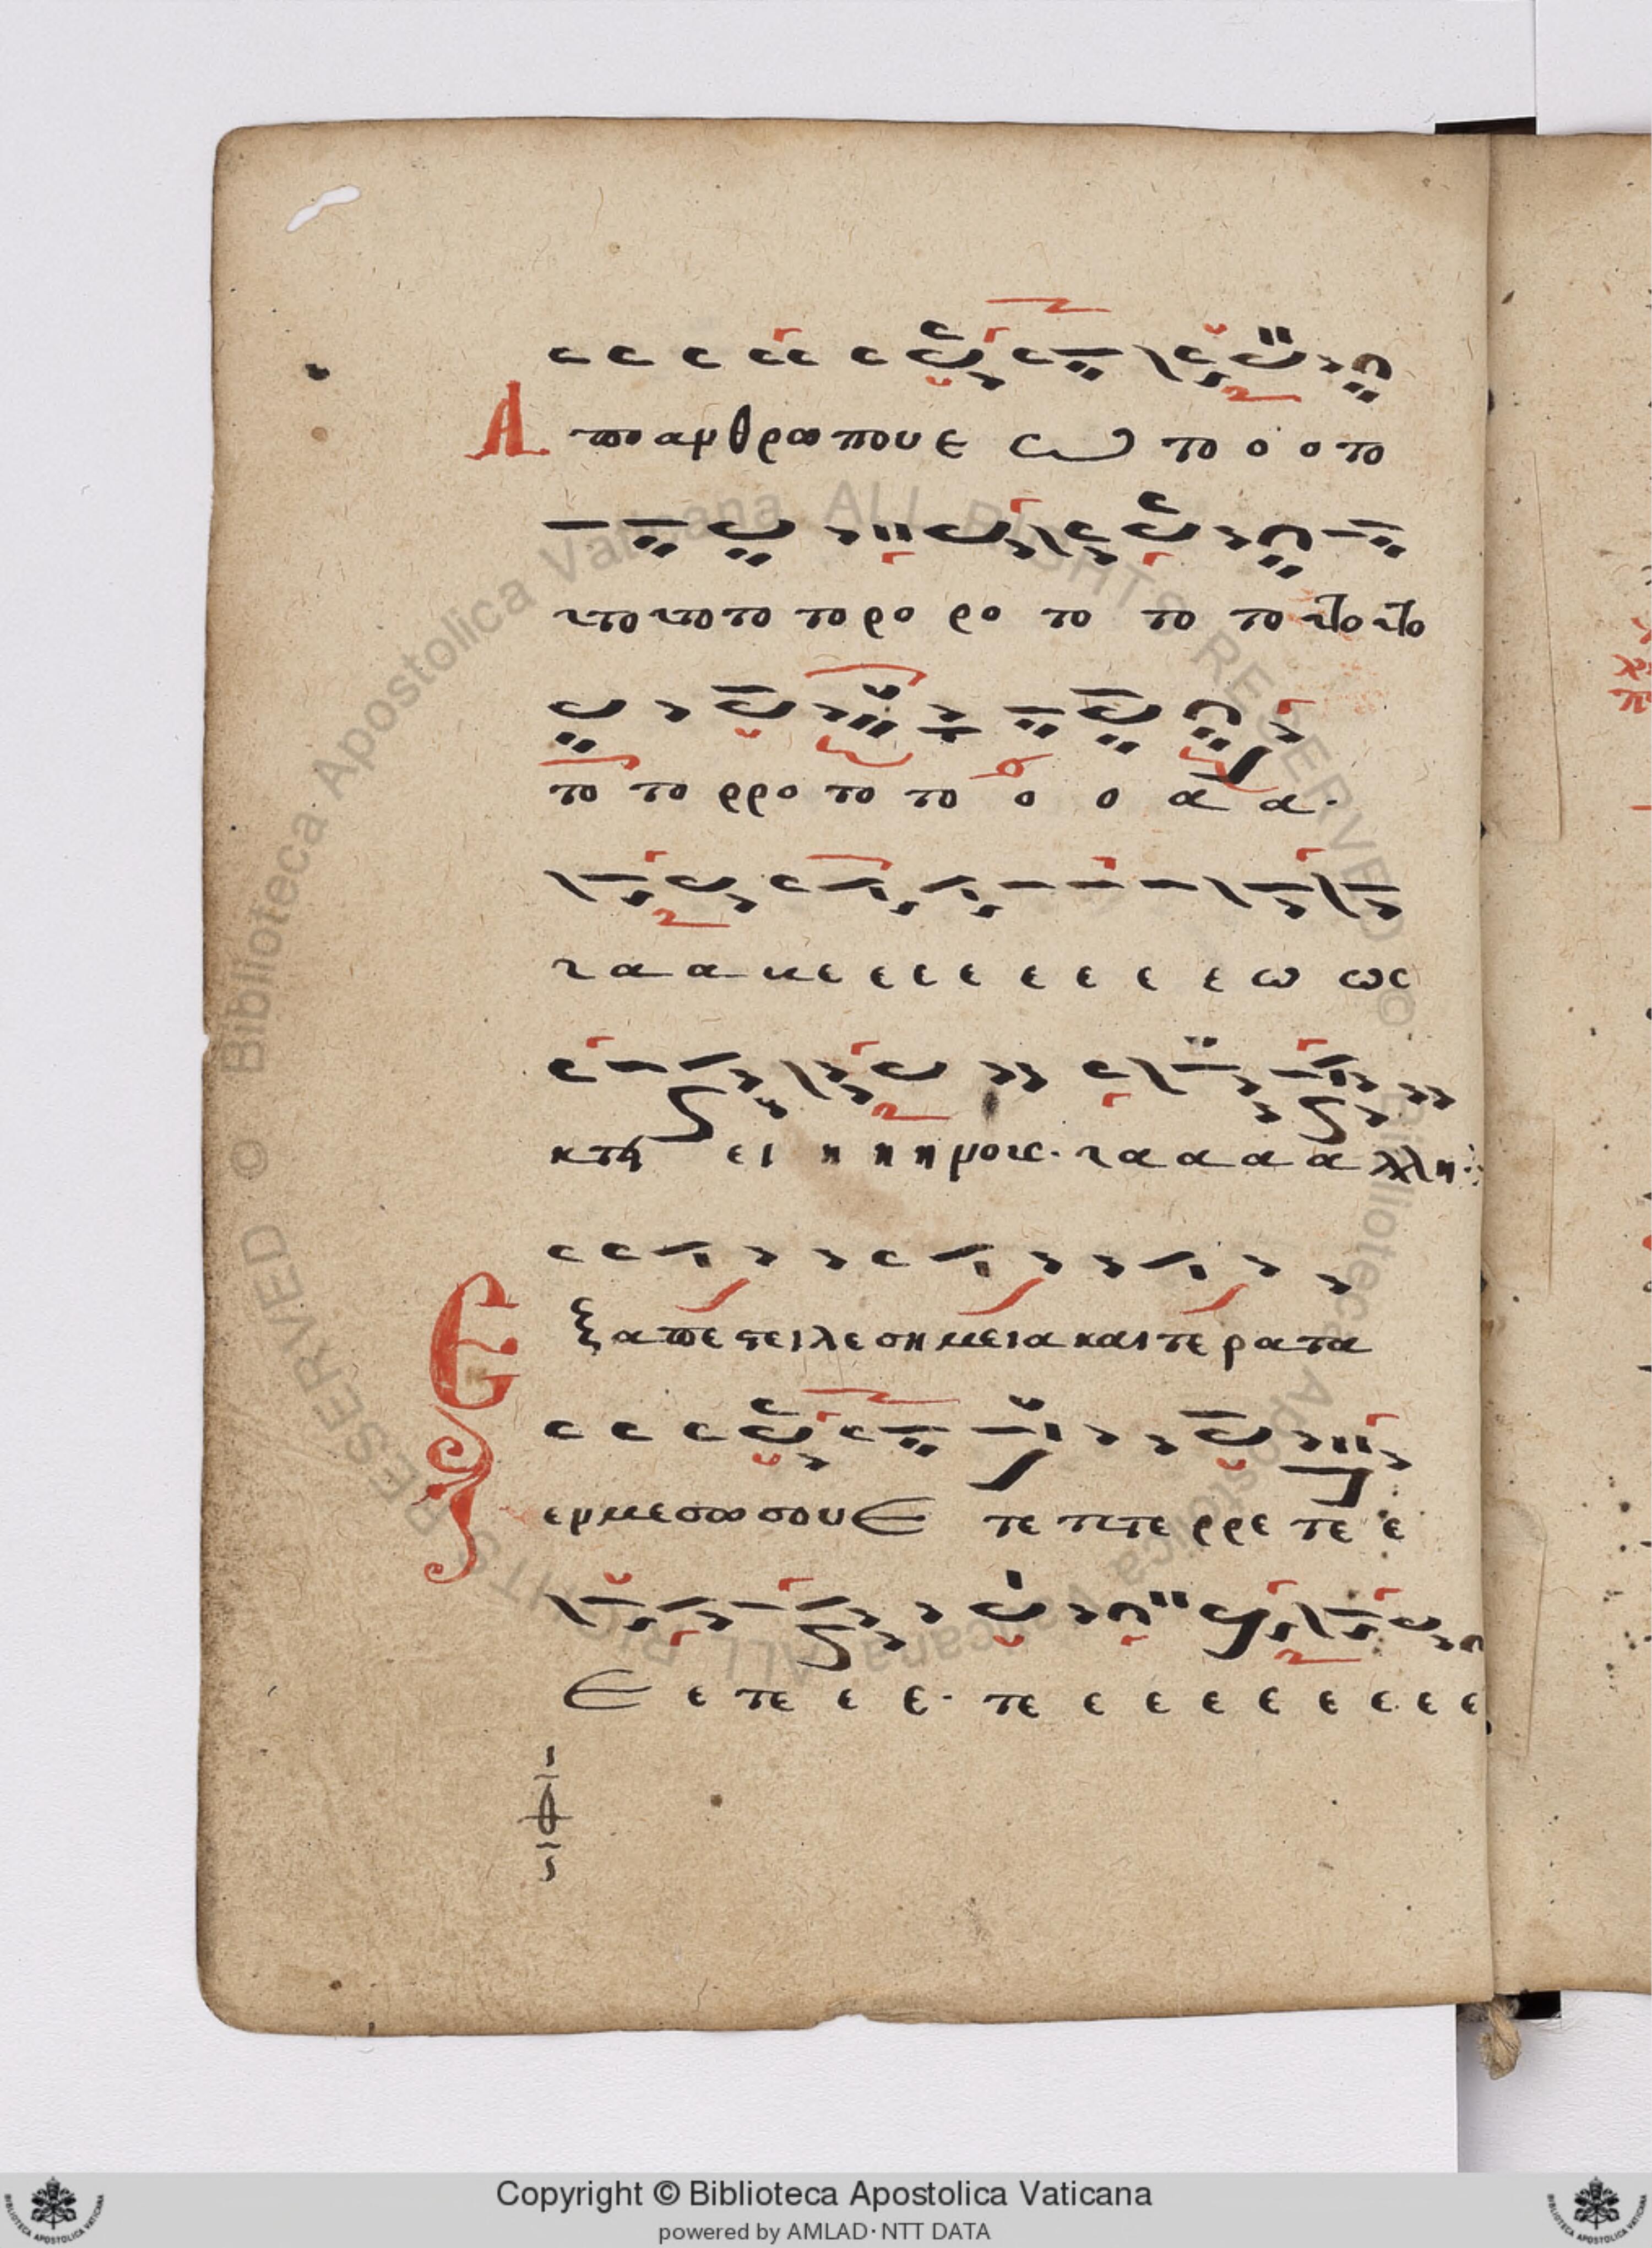 Απο αμθρωπου ε ω το ο ο το
το το το το ρο ρο το το το το το
το το ρρο το το ο ο α α·
τ α α κε ε ε ε ε ε ε ε ω ως
κτη ει η η η μοις· τ α α α α λλη
Εξαπεστειλε σημεια και τερατα
ερ μεσω σου Ε τε τε τε ρρε τε ε
Ε ε τε ε ε· τε ε ε ε ε ε ε ε ε
Biblioteca Apostolica Vaticana ALL RIGHTS RESERVED ©
Copyright © Biblioteca Apostolica Vaticana
powered by AMLAD·NTT DATA